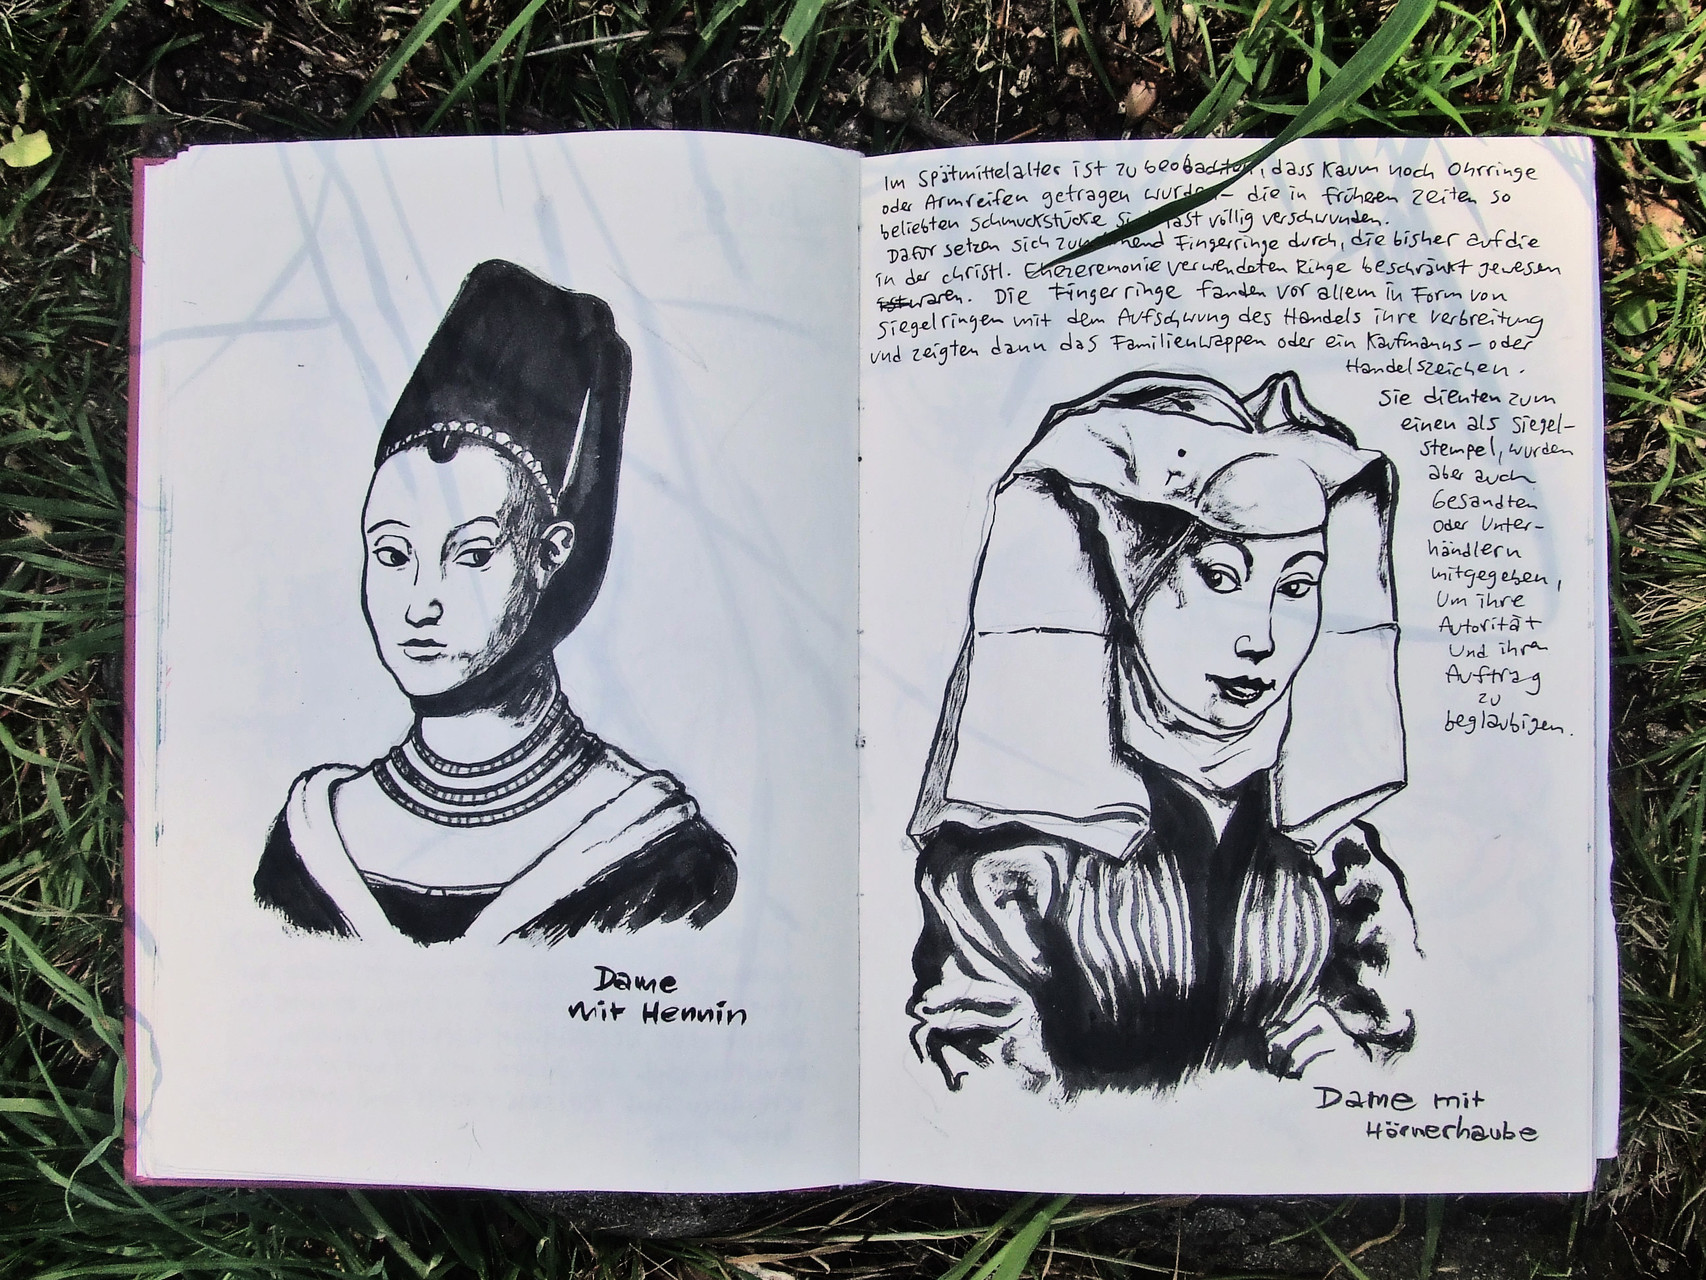 Dame
mit Hennin
Im Spätmittelalter ist zu beobachten, dass kaum noch Ohrringe
oder Armreifen getragen wurden – die in früheren Zeiten so
beliebten Schmuckstücke sind fast völlig verschwunden.
Dafür setzen sich zunehmend Fingerringe durch, die bisher auf die
in der christl. Ehezeremonie verwendeten Ringe beschränkt gewesen
ist waren. Die Fingerringe fanden vor allem in Form von
Siegelringen mit dem Aufschwung des Handels ihre Verbreitung
und zeigten dann das Familienwappen oder ein Kaufmanns- oder
Handelszeichen.
Sie dienten zum
einen als Siegel-
stempel, wurden
aber auch
Gesandten
oder Unter-
händlern
mitgegeben,
um ihre
Autorität
und ihren
Auftrag
zu
beglaubigen.
Dame mit
Hörnerhaube